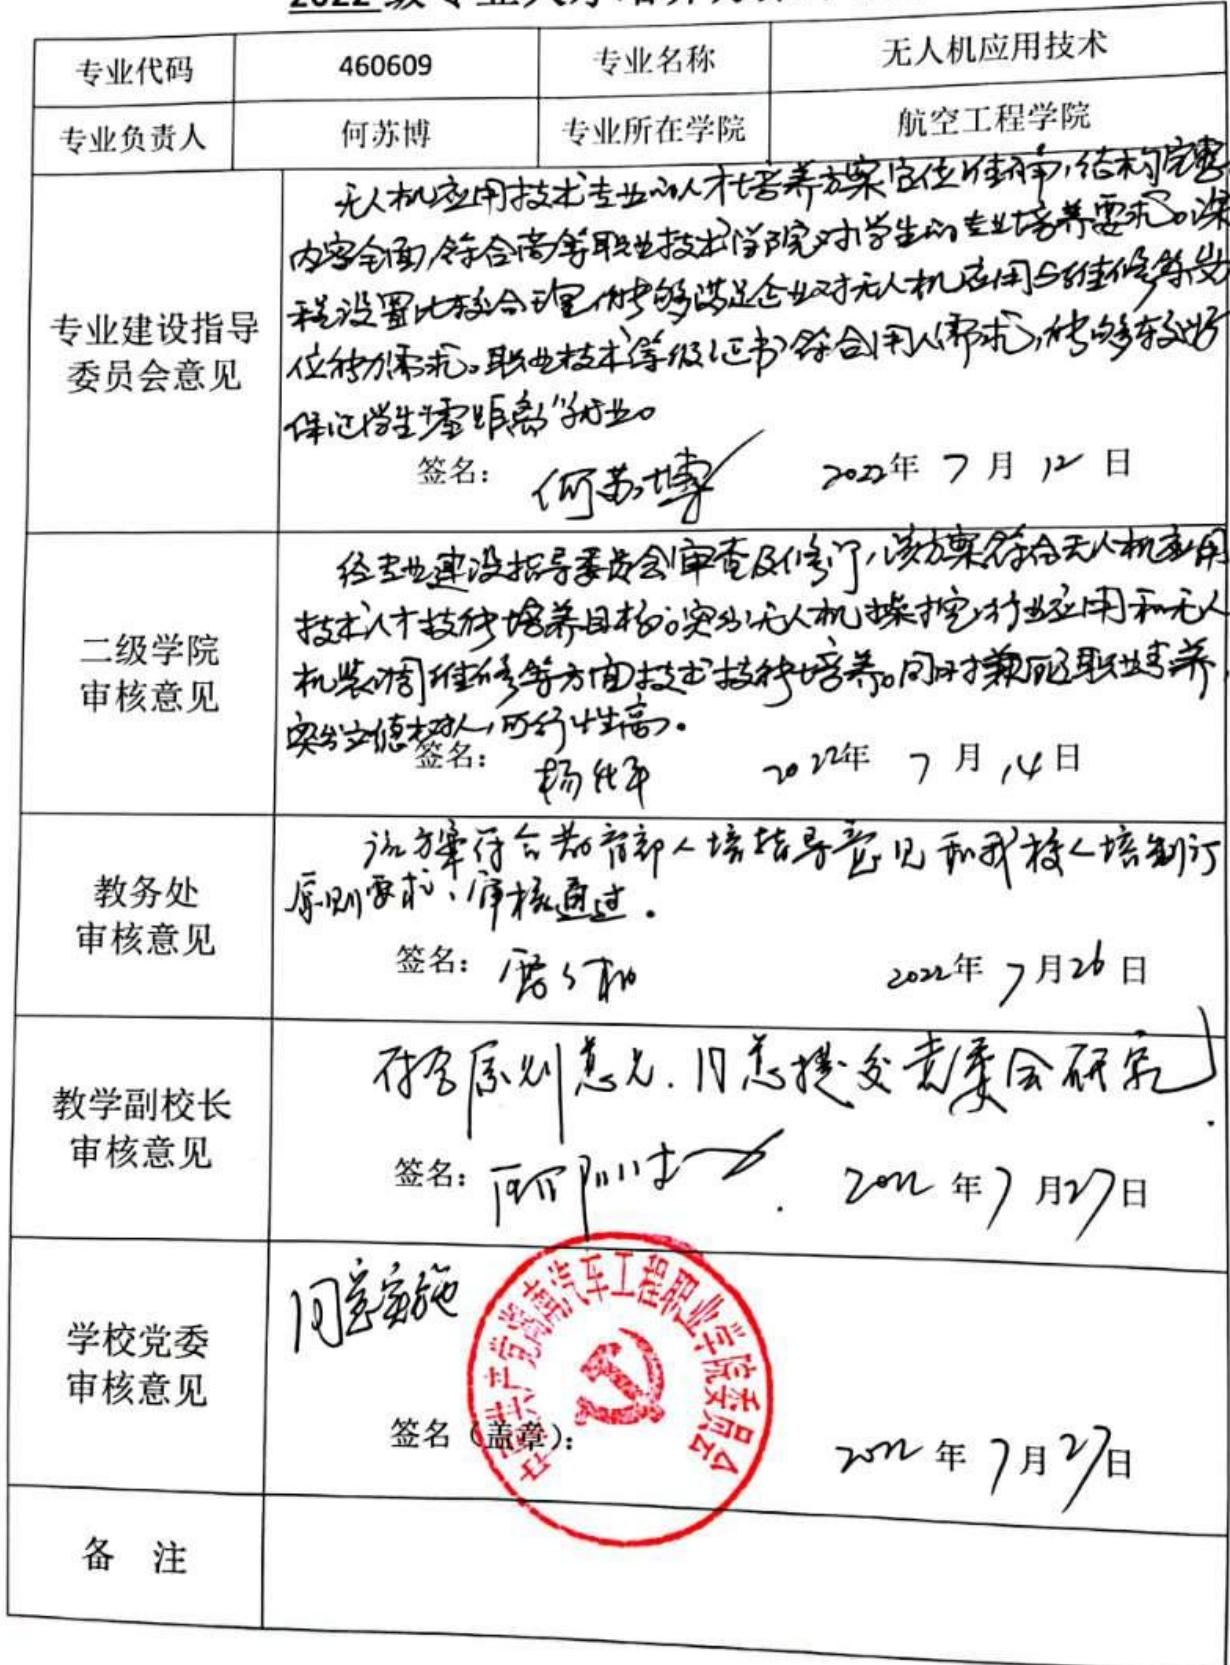 2022级专业人才培养方案
专业代码 460609 专业名称 无人机应用技术
专业负责人 何苏博 专业所在学院 航空工程学院
专业建设指导
委员会意见
无人机应用技术专业的人才培养方案定位准确,结构完整
内容全面,符合高等职业技术学院对学生的专业培养要求。课
程设置比较合理,能够满足企业对无人机应用与维修等岗
位能力需求。职业技术等级证书符合用人需求,能够较好
保证学生“零距离”就业。
签名: 何苏博 2022年 7 月 12 日
二级学院
审核意见
经专业建设指导委员会审查及修订,该方案符合无人机应用
技术人才技能培养目标。突出无人机操控,行业应用和无人
机装调维修等方面技术技能培养。同时兼顾职业素养,
突出立德树人,可行性高。
签名: 2022年 7 月 14 日
教务处
审核意见
该方案符合教育部人培指导意见和我校人培制订
原则要求,审核通过.
签名: 2022年 7 月 26 日
教学副校长
审核意见
符合原则意见.同意提交党委会研究
签名: 2022 年 7 月 27 日
学校党委
审核意见
同意实施
中国共产党湖南汽车工程职业学院委员会
签名(盖章): 2022 年 7 月 27 日
备 注